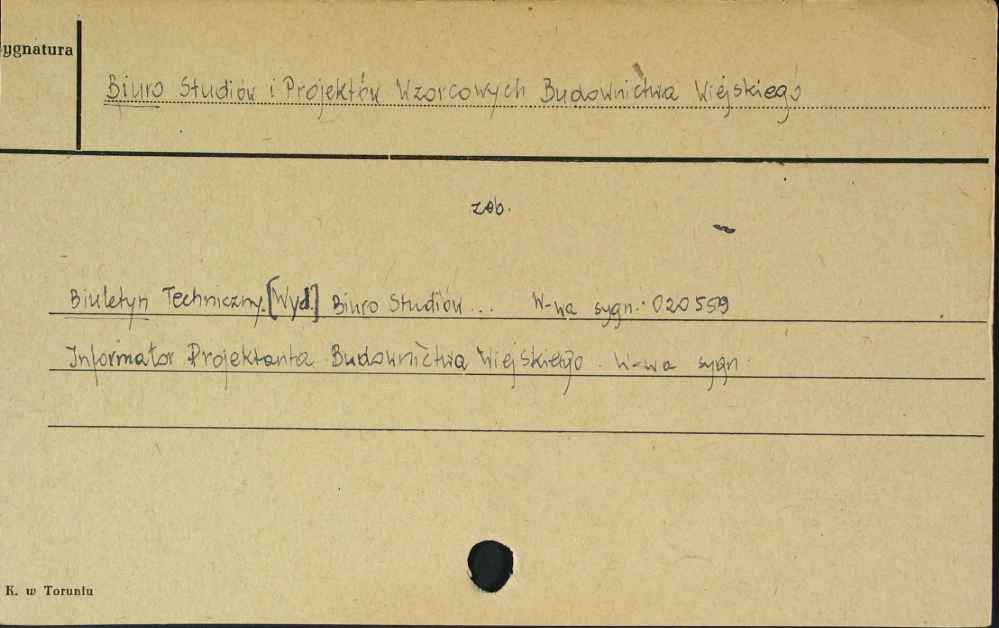 ygnatura
Biuro Studiów i Projektów Wzorcowych Budownictwa Wiejskiego
zob.
Biuletyn Techniczny. [Wyd.] Biuro Studiów ... W-wa sygn. 020559
Informator Projektanta Budownictwa Wiejskiego. W-wa sygn.
K. w Toruniu